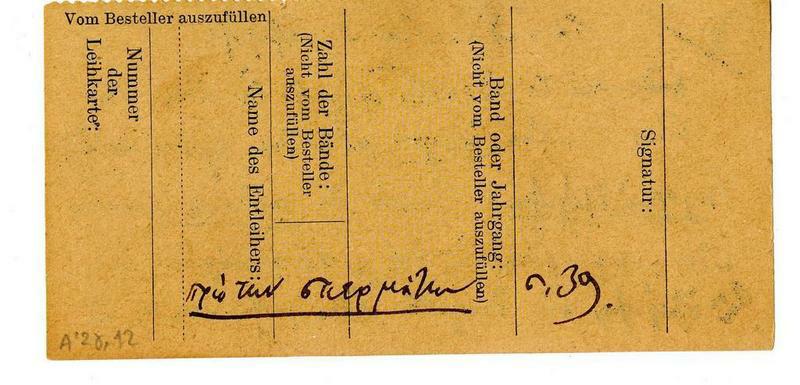 Vom Besteller auszufüllen
Nummer
der
Leihkarte:
Name des Entleihers:
Zahl der Bände:
(Nicht vom Besteller
auszufüllen)
Band oder Jahrgang:
(Nicht vom Besteller auszufüllen)
Signatur:
πρὸ τῶν σπερμάτων σ. 39.